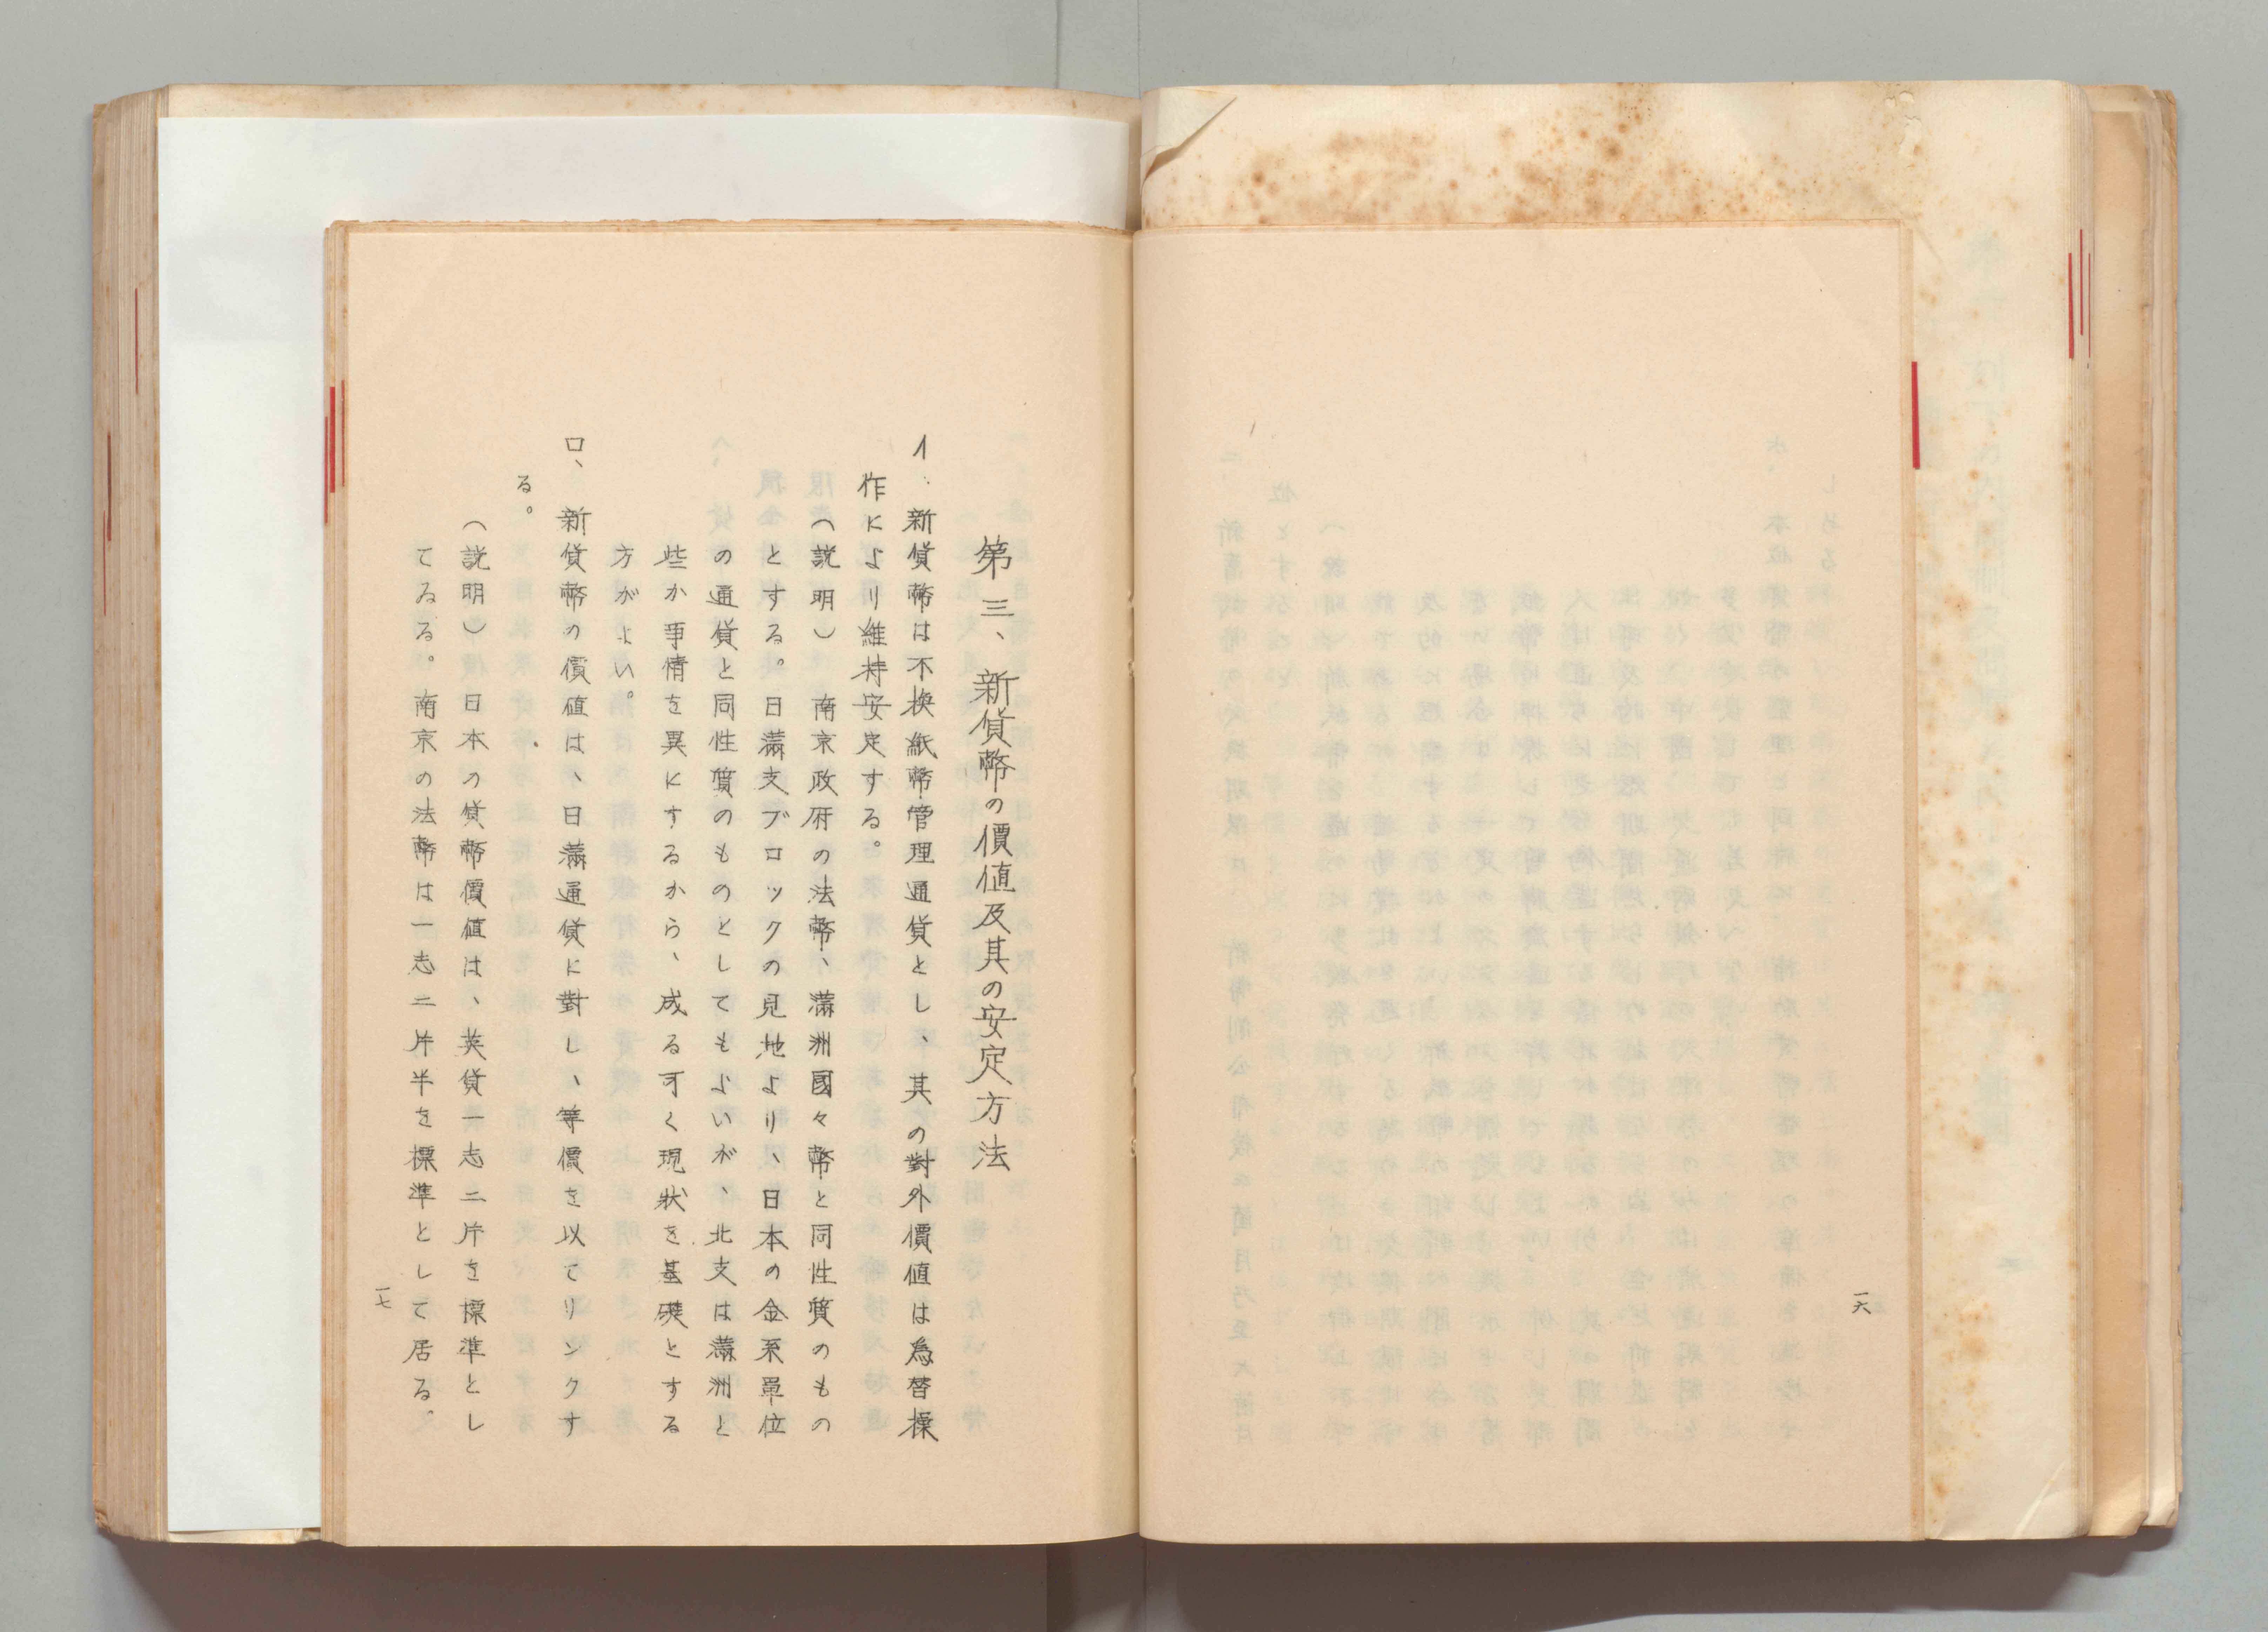 一六
第三、新貨幣の價値及其の安定方法
イ、新貨幣は不換紙幣管理通貨とし、其の對外價値は為替操
作により維持安定する。
（説明）南京政府の法幣、滿洲國々幣と同性質のもの
とする。日滿支ブロックの見地より、日本の金系單位
の通貨と同性質のものとしてもよいが、北支は滿洲と
些か事情を異にするから、成る可く現狀を基礎とする
方がよい。
ロ、新貨幣の價値は、日滿通貨に對し、等價を以てリンクす
る。
（説明）日本の貨幣價値は、英貨一志二片を標準とし
てゐる。南京の法幣は一志二片半を標準として居る。
一七